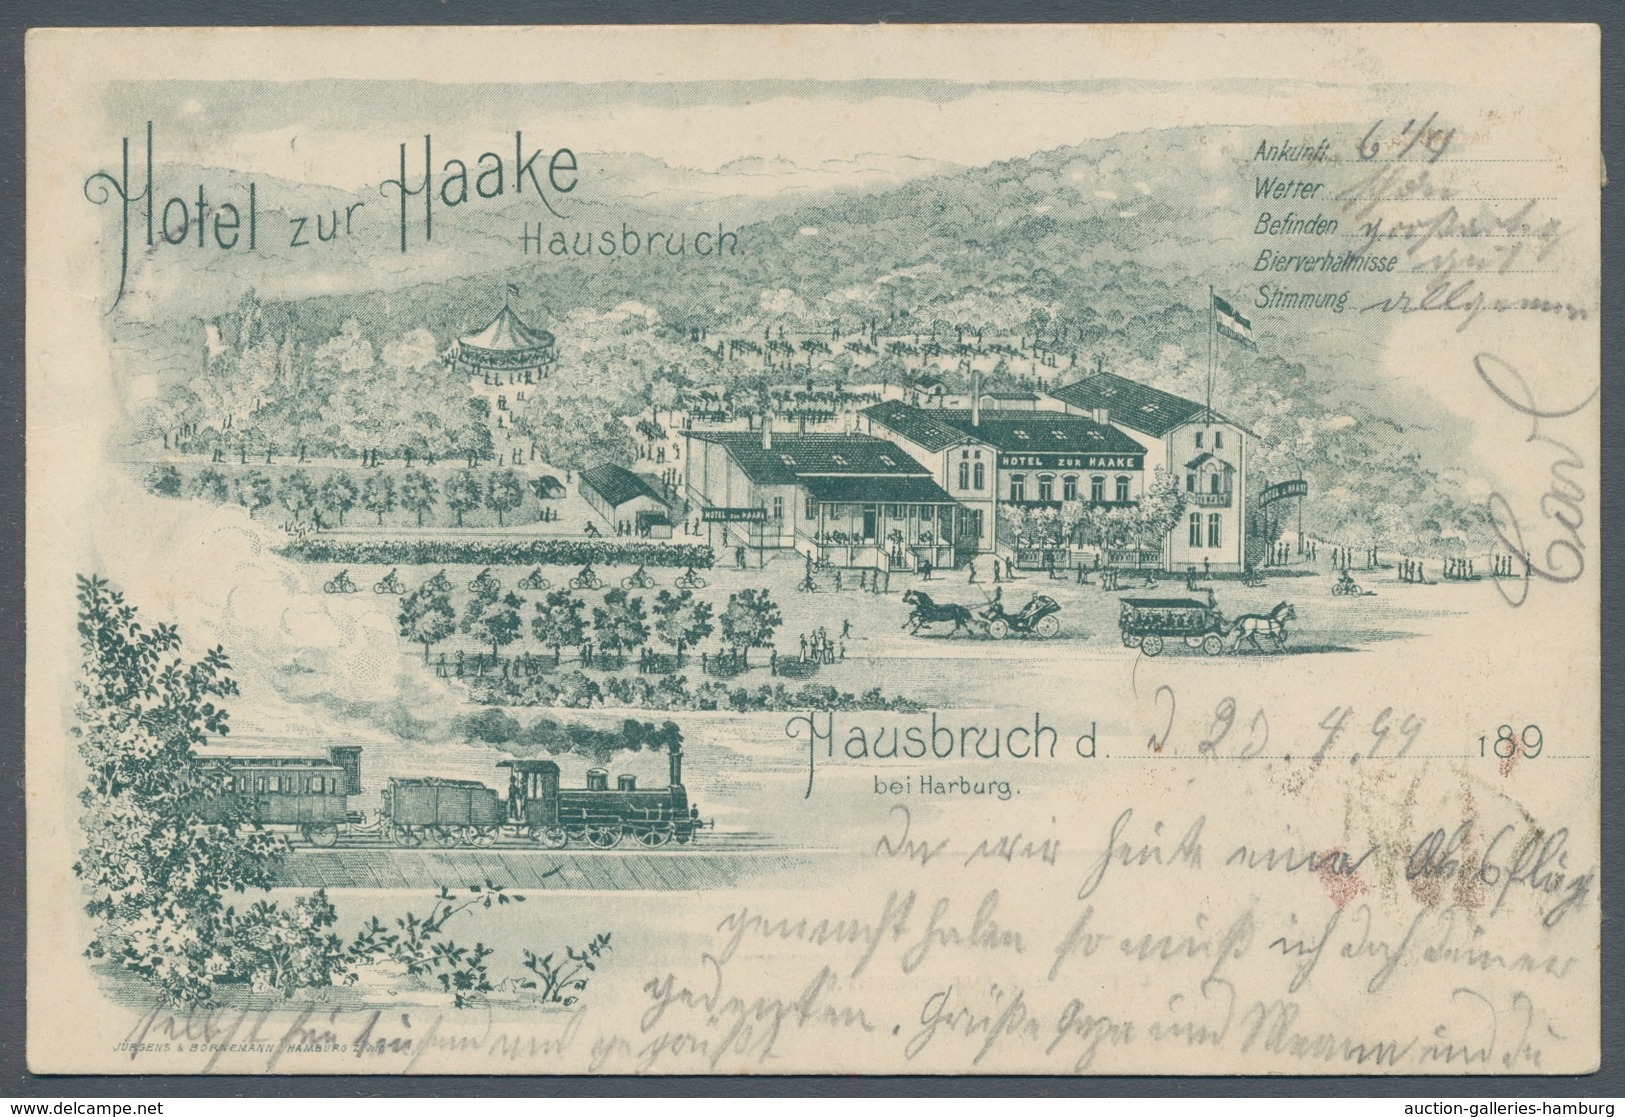 Hotel zur Haake
Hausbruch.
Ankunft 6 1/4
Wetter schön
Befinden großartig
Bierverhältnisse gut
Stimmung allgemein
HOTEL ZUR HAAKE
HOTEL ZUR HAAKE
Hausbruch d. d. 23.4.99 189
bei Harburg.
Da wir heute eine
gemacht haben so muß ich doch deiner
gedenken. Grüße und Mama und du
selbst sei tausend mal gegrüßt
JÜRGENS & BORNEMANN, HAMBURG
auction-galleries-hamburg
www.delcampe.net